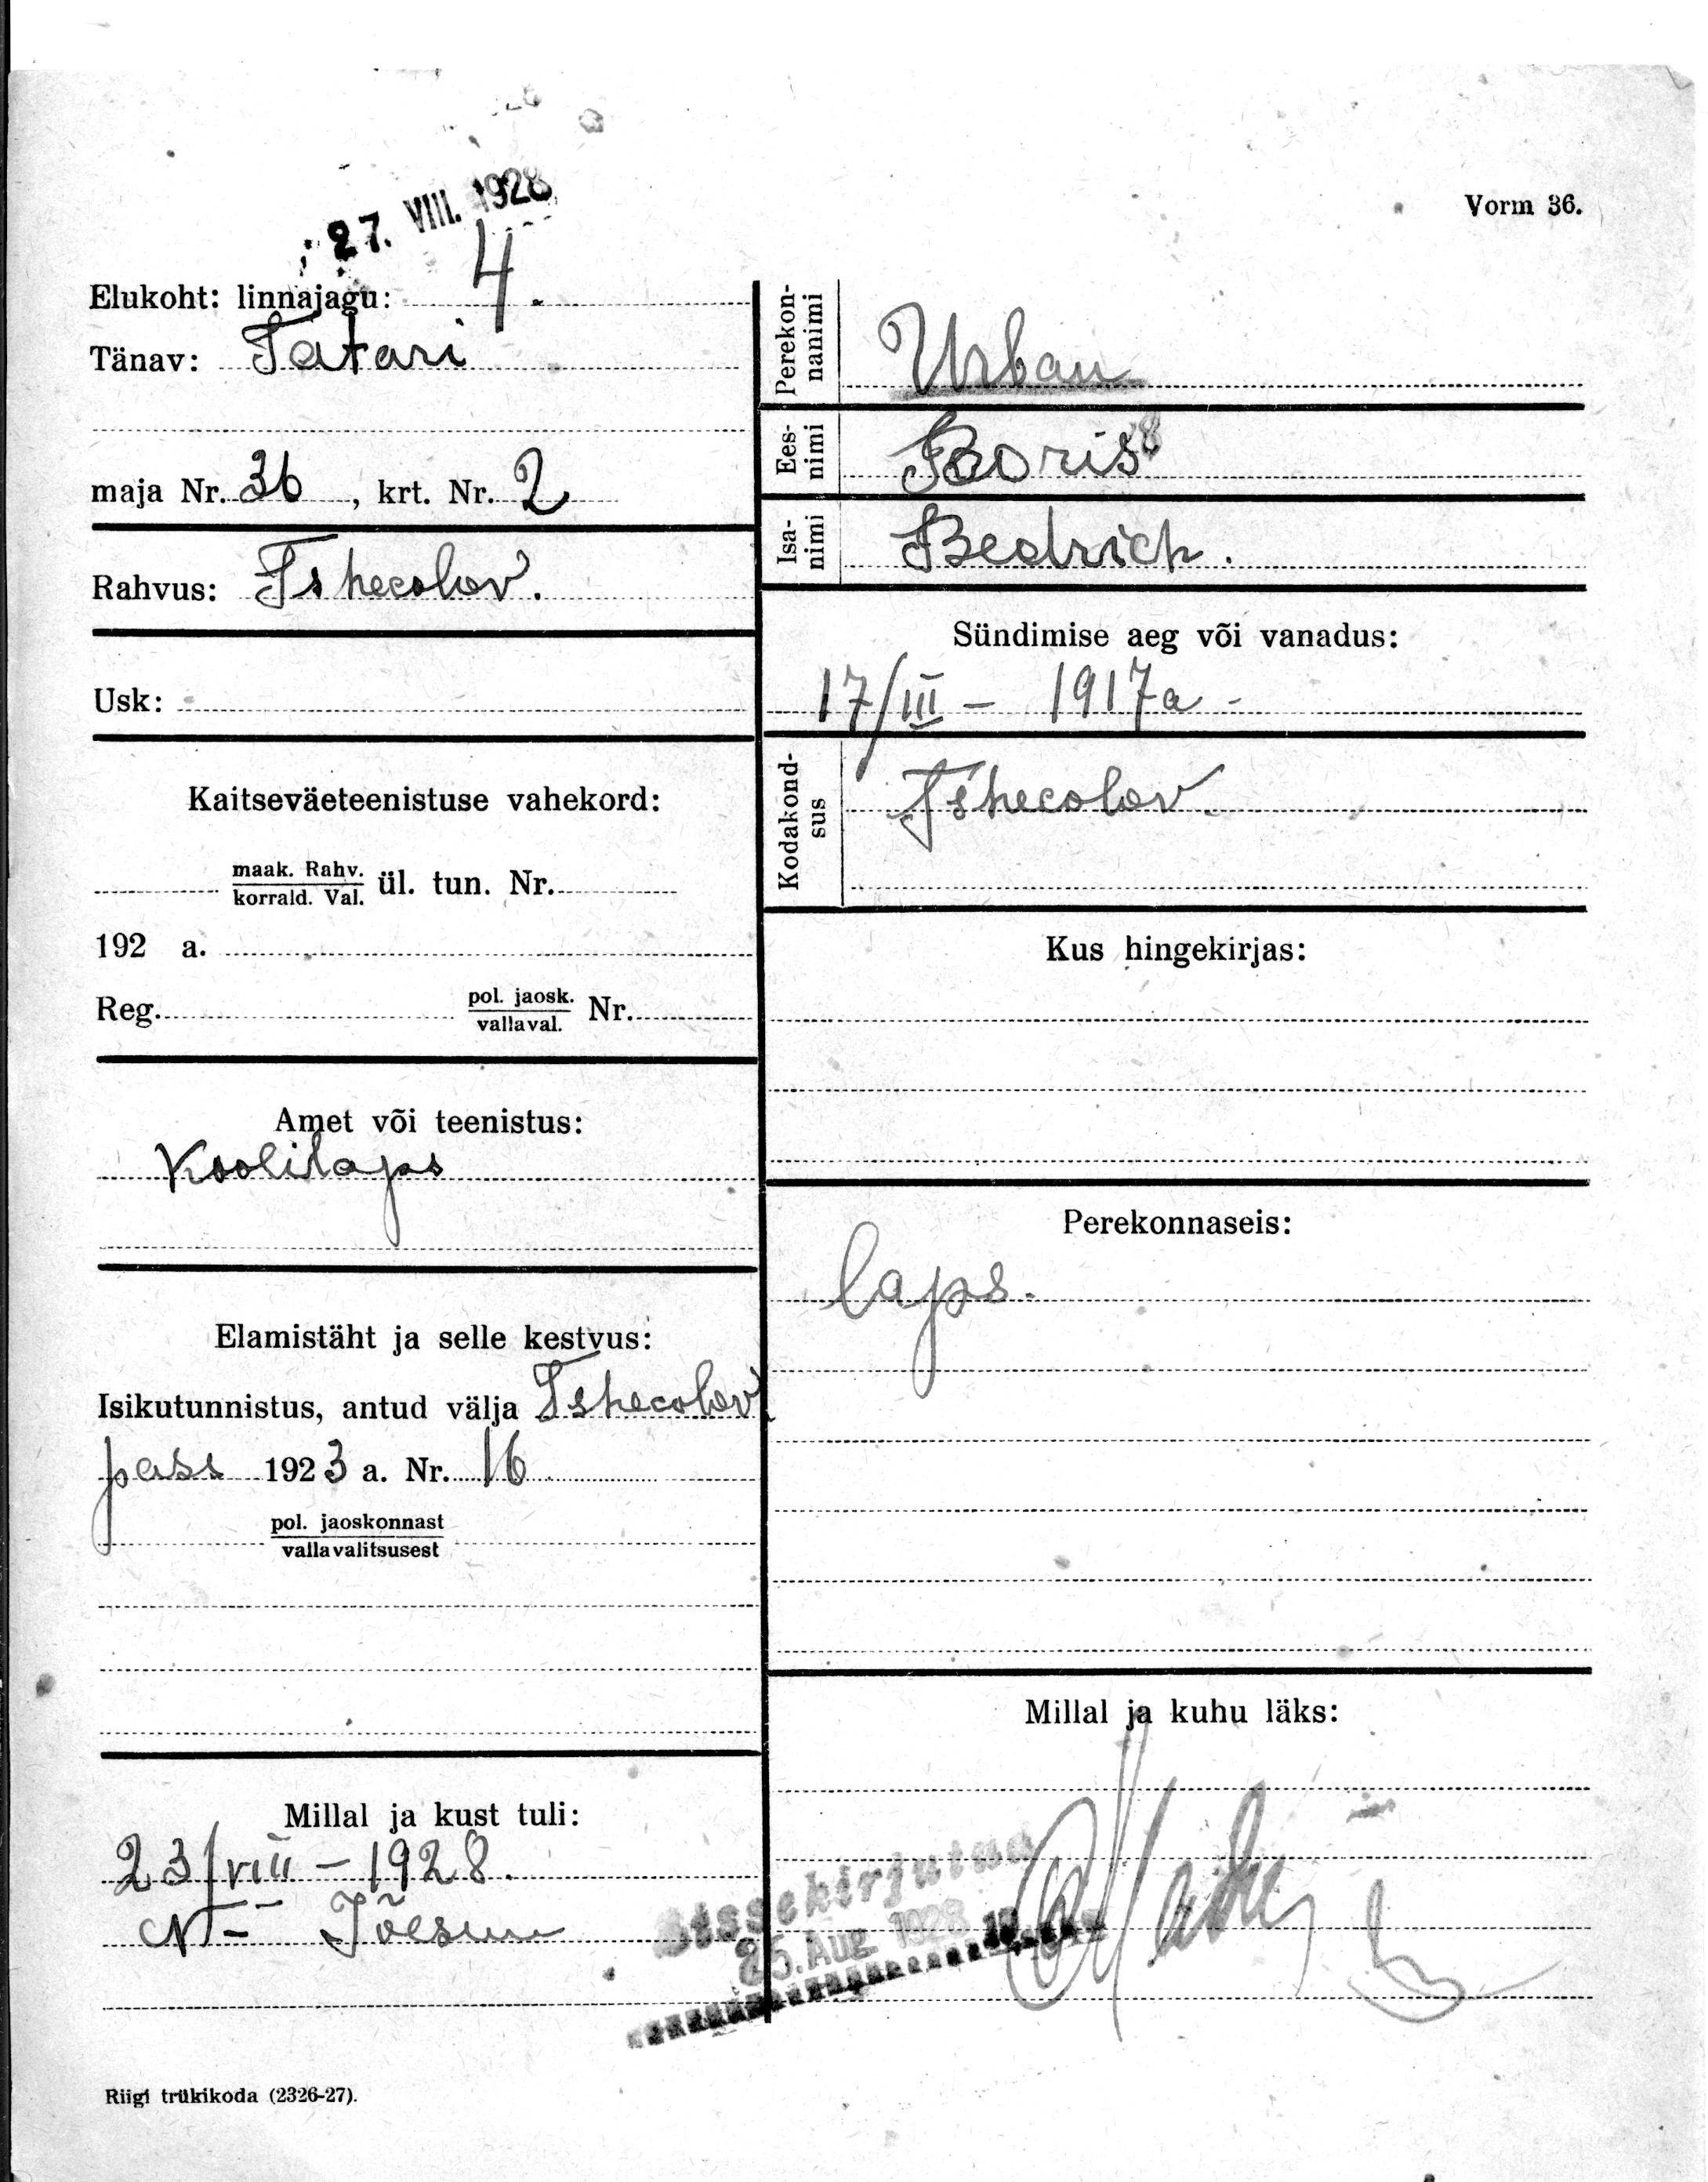 27. VIII. 1928
Vorm 36.
Elukoht: linnajagu: 4.
Tänav: Tatari
maja Nr. 36, krt. Nr. 2
Rahvus: Tshecolov.
Usk:
Kaitseväeteenistuse vahekord:
maak. Rahv.
korrald. Val.
ül. tun. Nr.
192 a.
Reg. pol. jaosk.
vallaval.
Nr.
Amet või teenistus:
Koolilaps
Elamistäht ja selle kestvus:
Isikutunnistus, antud välja Tshecolov
pass 1923 a. Nr. 16
pol. jaoskonnast
vallavalitsusest
Millal ja kust tuli:
23/VIII – 1928.
N– Jõesuu
Perekon-
nanimi
Urban
Ees-
nimi
Boris
Isa-
nimi
Bedrich.
Sündimise aeg või vanadus:
17/III – 1917 a -
Kodakond-
sus
Tshecolov.
Kus hingekirjas:
Perekonnaseis:
laps.
Millal ja kuhu läks:
Sissekirjutud
25. Aug 1928
Riigi trükikoda (2326-27).